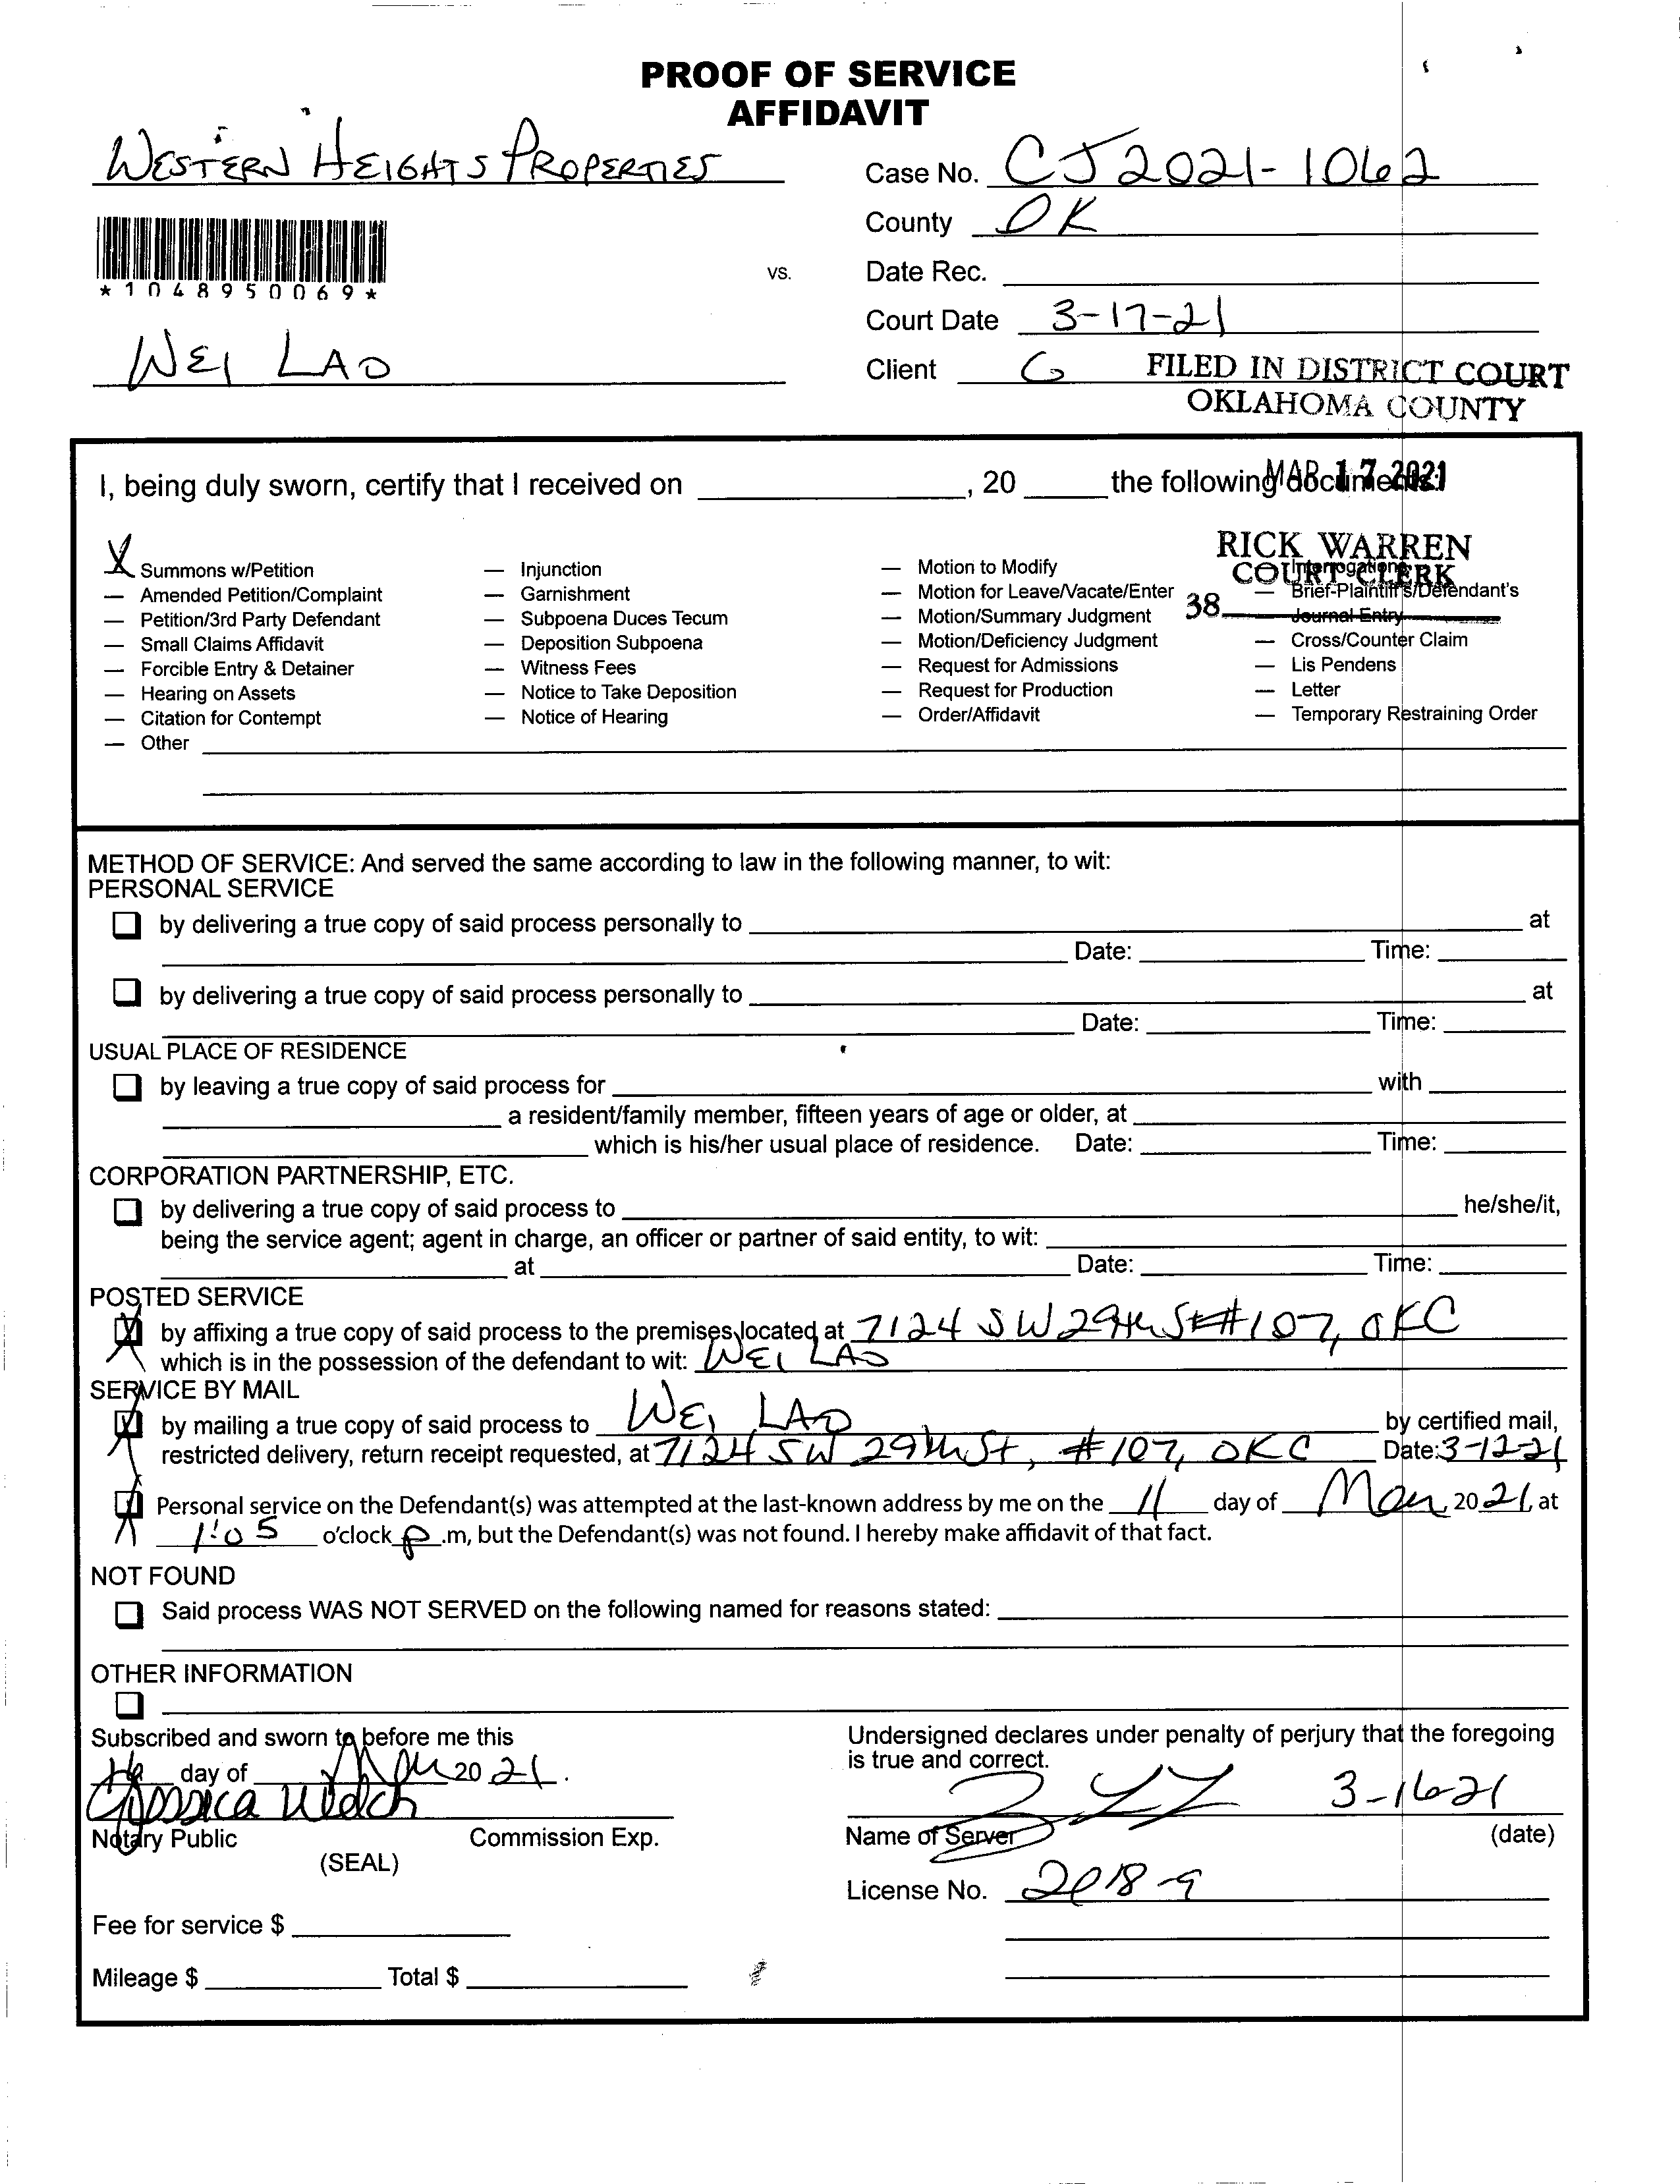 PROOF OF SERVICE
AFFIDAVIT
WESTERN HEIGHTS PROPERTIES
Case No. CJ 2021-1062
County OK
*1048950069*
vs.
Date Rec.
Court Date 3-17-21
WEI LAO
Client G
FILED IN DISTRICT COURT
OKLAHOMA COUNTY
I, being duly sworn, certify that I received on ____, 20 ____ the following documents:
MAR 17 2021
RICK WARREN
COURT CLERK
38
X Summons w/Petition
— Amended Petition/Complaint
— Petition/3rd Party Defendant
— Small Claims Affidavit
— Forcible Entry & Detainer
— Hearing on Assets
— Citation for Contempt
— Other
— Injunction
— Garnishment
— Subpoena Duces Tecum
— Deposition Subpoena
— Witness Fees
— Notice to Take Deposition
— Notice of Hearing
— Motion to Modify
— Motion for Leave/Vacate/Enter
— Motion/Summary Judgment
— Motion/Deficiency Judgment
— Request for Admissions
— Request for Production
— Order/Affidavit
Interrogations
— Brief-Plaintiff's/Defendant's
Journal Entry
— Cross/Counter Claim
— Lis Pendens
— Letter
— Temporary Restraining Order
METHOD OF SERVICE: And served the same according to law in the following manner, to wit:
PERSONAL SERVICE
by delivering a true copy of said process personally to ____ at
Date: ____ Time: ____
by delivering a true copy of said process personally to ____ at
Date: ____ Time: ____
USUAL PLACE OF RESIDENCE
by leaving a true copy of said process for ____ with ____
a resident/family member, fifteen years of age or older, at ____
which is his/her usual place of residence. Date: ____ Time: ____
CORPORATION PARTNERSHIP, ETC.
by delivering a true copy of said process to ____ he/she/it,
being the service agent; agent in charge, an officer or partner of said entity, to wit: ____
at ____ Date: ____ Time: ____
POSTED SERVICE
by affixing a true copy of said process to the premises located at 7124 SW 29th St #107, OKC
which is in the possession of the defendant to wit: WEI LAO
SERVICE BY MAIL
by mailing a true copy of said process to WEI LAO by certified mail,
restricted delivery, return receipt requested, at 7124 SW 29th St, #107, OKC Date: 3-12-21
Personal service on the Defendant(s) was attempted at the last-known address by me on the 11 day of Mar, 20 21, at
1:05 o'clock p.m, but the Defendant(s) was not found. I hereby make affidavit of that fact.
NOT FOUND
Said process WAS NOT SERVED on the following named for reasons stated:
OTHER INFORMATION
Subscribed and sworn to before me this
day of Mar 20 21.
Jessica Welch
Notary Public Commission Exp.
(SEAL)
Fee for service $
Mileage $ ____ Total $ ____
Undersigned declares under penalty of perjury that the foregoing
is true and correct.
3-16-21
Name of Server (date)
License No. 2018-9